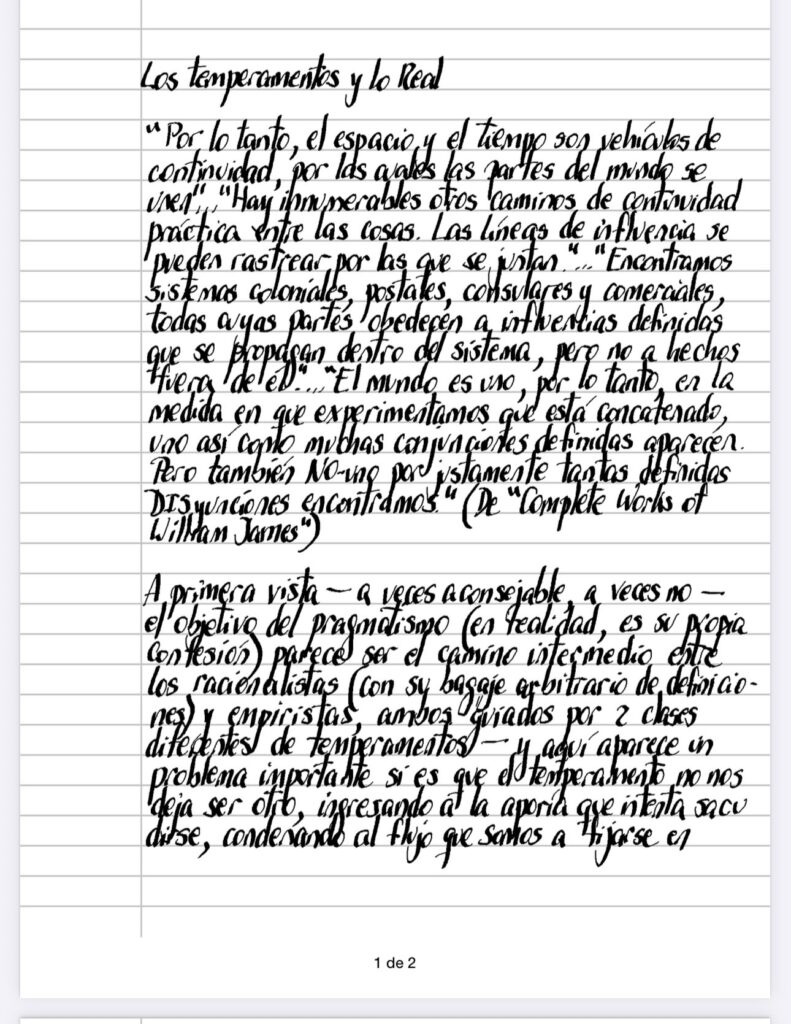 Los temperamentos y lo Real
"Por lo tanto, el espacio y el tiempo son vehículos de
continuidad, por los cuales las partes del mundo se
unen"..."Hay innumerables otros caminos de continuidad
práctica entre las cosas. Las líneas de influencia se
pueden rastrear por las que se juntan."..."Encontramos
sistemas coloniales, postales, consulares y comerciales,
todas cuyas partes obedecen a influencias definidas
que se propagan dentro del sistema, pero no a hechos
fuera de él"..."El mundo es uno, por lo tanto, en la
medida en que experimentamos que está concatenado,
uno así como muchas conjunciones definidas aparecen.
Pero también NO-uno por justamente tantas definidas
DISyunciones encontramos." (De "Complete Works of
William James")
A primera vista — a veces aconsejable, a veces no —
el objetivo del pragmatismo (en realidad, es su propia
confesión) parece ser el camino intermedio entre
los racionalistas (con su bagaje arbitrario de definicio-
nes) y empiristas, ambos guiados por 2 clases
diferentes de temperamentos — y aquí aparece un
problema importante si es que el temperamento no nos
deja ser otro, ingresando a la aporía que intenta sacu
dirse, condenando al flujo que somos a fijarse en
1 de 2